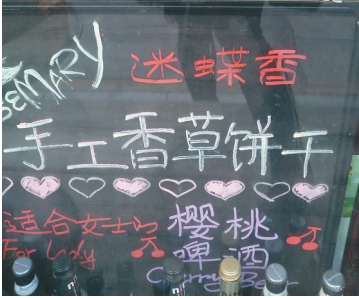 SEMARY 迷蝶香
手工香草饼干
适合女士的
For lady
樱桃
啤酒
Cherry Beer